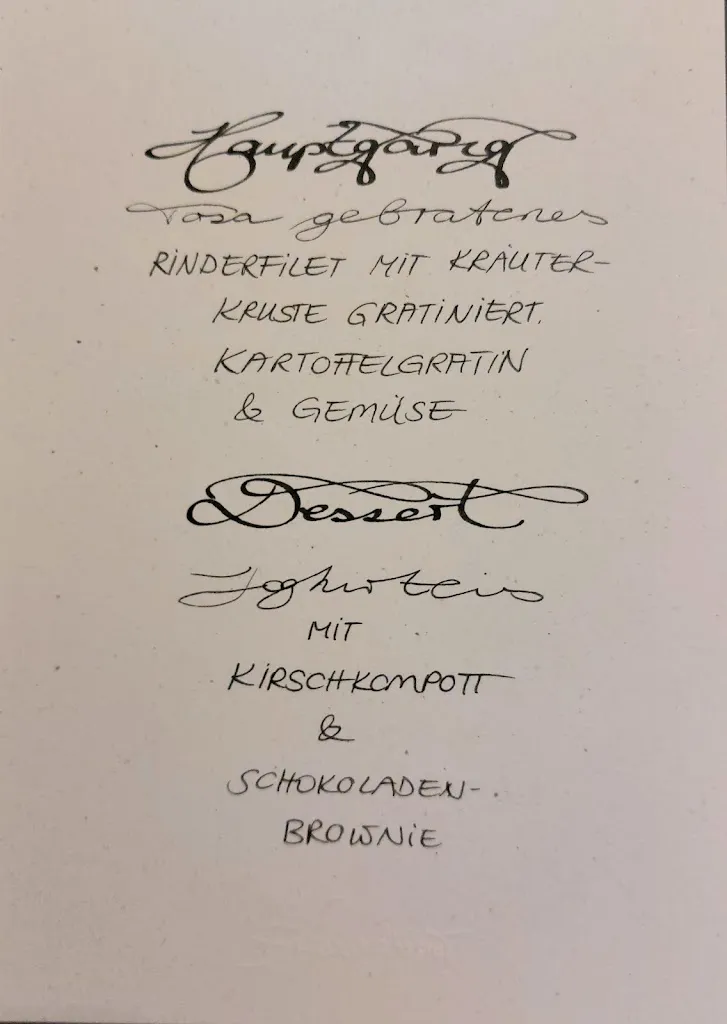 Hauptgang
rosa gebratenes
RINDERFILET MIT KRÄUTER-
KRUSTE GRATINIERT.
KARTOFFELGRATIN
& GEMÜSE
Dessert
Joghurteis
MIT
KIRSCHKOMPOTT
&
SCHOKOLADEN-
BROWNIE